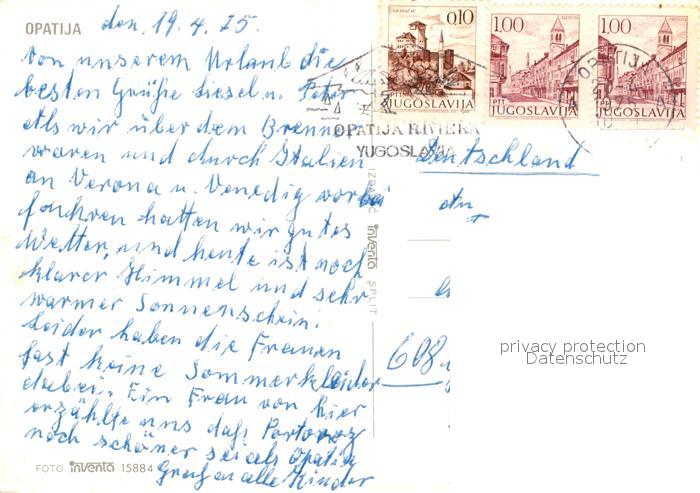 OPATIJA den, 19.4.75.
Von unserem Urlaub die
besten Grüße Liesel u. Peter
Als wir über dem Brenner
waren und durch Italien
an Verona u. Venedig vorbei
fuhren hatten wir gutes
Wetter, und heute ist noch
klarer Himmel und sehr
warmer Sonnenschein.
Leider haben die Frauen
fast keine Sommerkleider
dabei. Ein Frau von hier
erzählte uns daß Portoroz
noch schöner sei als Opatia
Grußen alle Kinder
FOTO inventa 15884
inventa SPLIT
0,10
PTT JUGOSLAVIJA
1.00
PTT JUGOSLAVIJA
1.00
PTT JUGOSLAVIJA
OPATIJA
OPATIJA RIVIERA
YUGOSLAVIA
Deutschland
An
608
privacy protection
Datenschutz